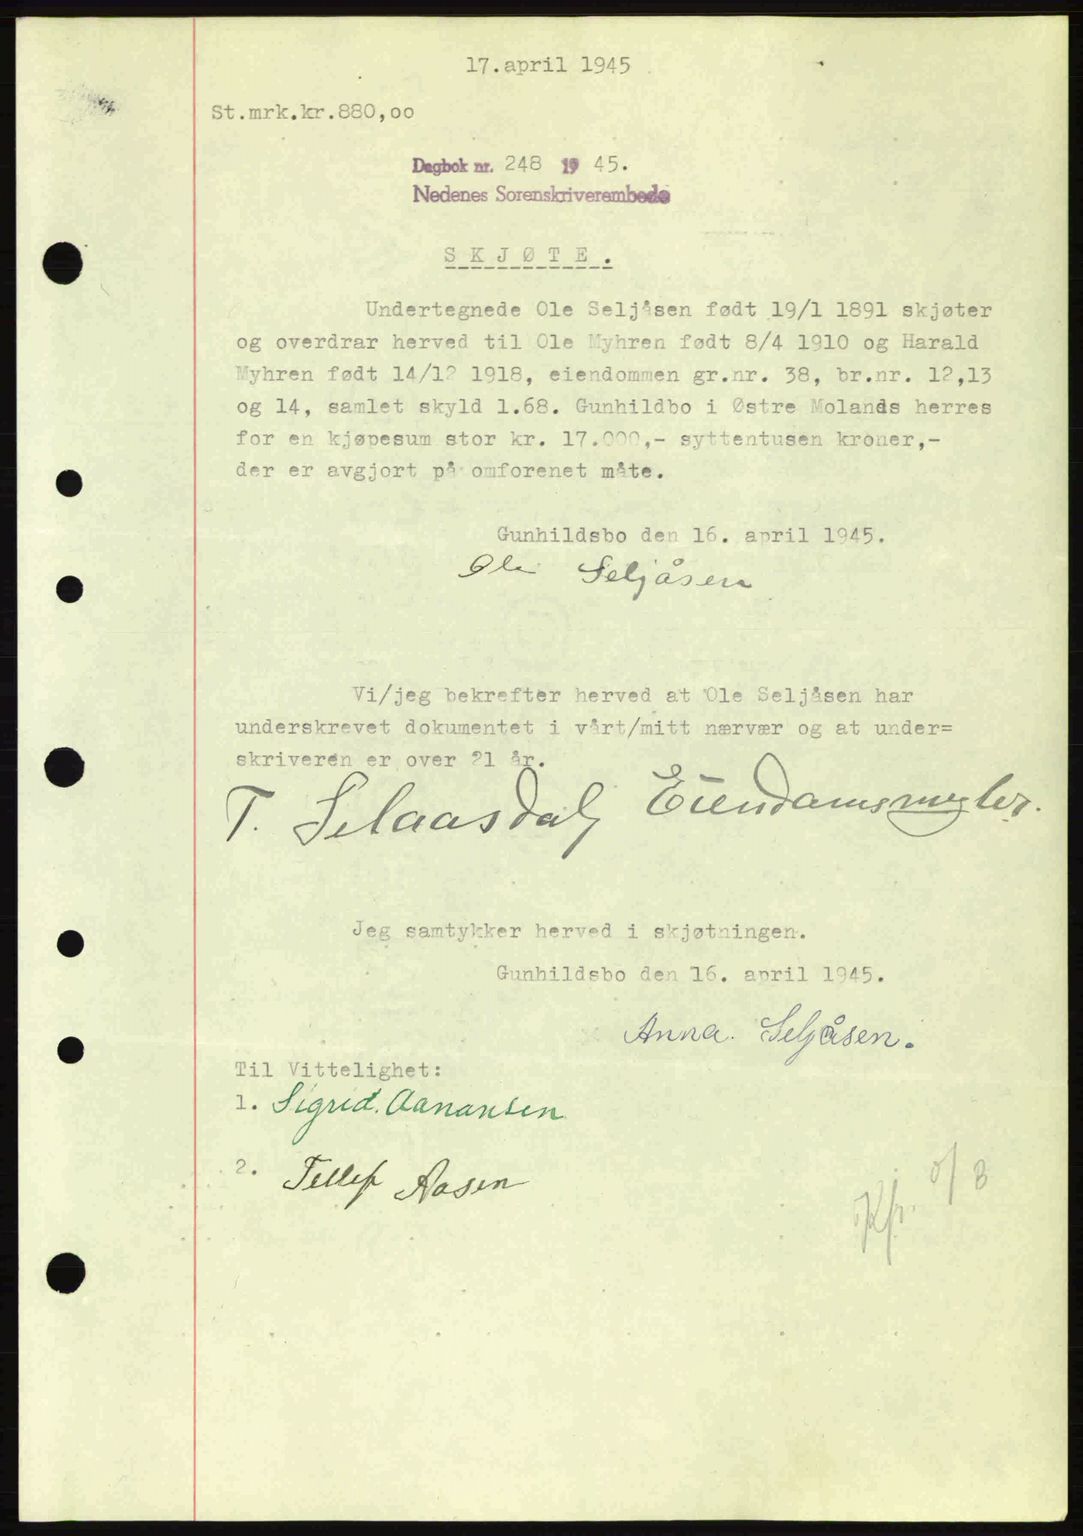 17.april 1945
St.mrk.kr.880,oo
Dagbok nr. 248 19 45.
Nedenes Sorenskriverembede
S K J Ø T E .
Undertegnede Ole Seljåsen født 19/1 1891 skjøter
og overdrar herved til Ole Myhren født 8/4 1910 og Harald
Myhren født 14/12 1918, eiendommen gr.nr. 38, br.nr. 12,13
og 14, samlet skyld 1.68. Gunhildbo i Østre Molands herres
for en kjøpesum stor kr. 17.000,- syttentusen kroner,-
der er avgjort på omforenet måte.
Gunhildsbo den 16. april 1945.
Ole Seljåsen
Vi/jeg bekrefter herved at Ole Seljåsen har
underskrevet dokumentet i vårt/mitt nærvær og at under=
skriveren er over 21 år.
T. Selaasdal Eiendomsmegler.
Jeg samtykker herved i skjøtningen.
Gunhildsbo den 16. april 1945.
Anna Seljåsen.
Til Vittelighet:
1. Sigrid. Aanansen
2. Tellef Aasen